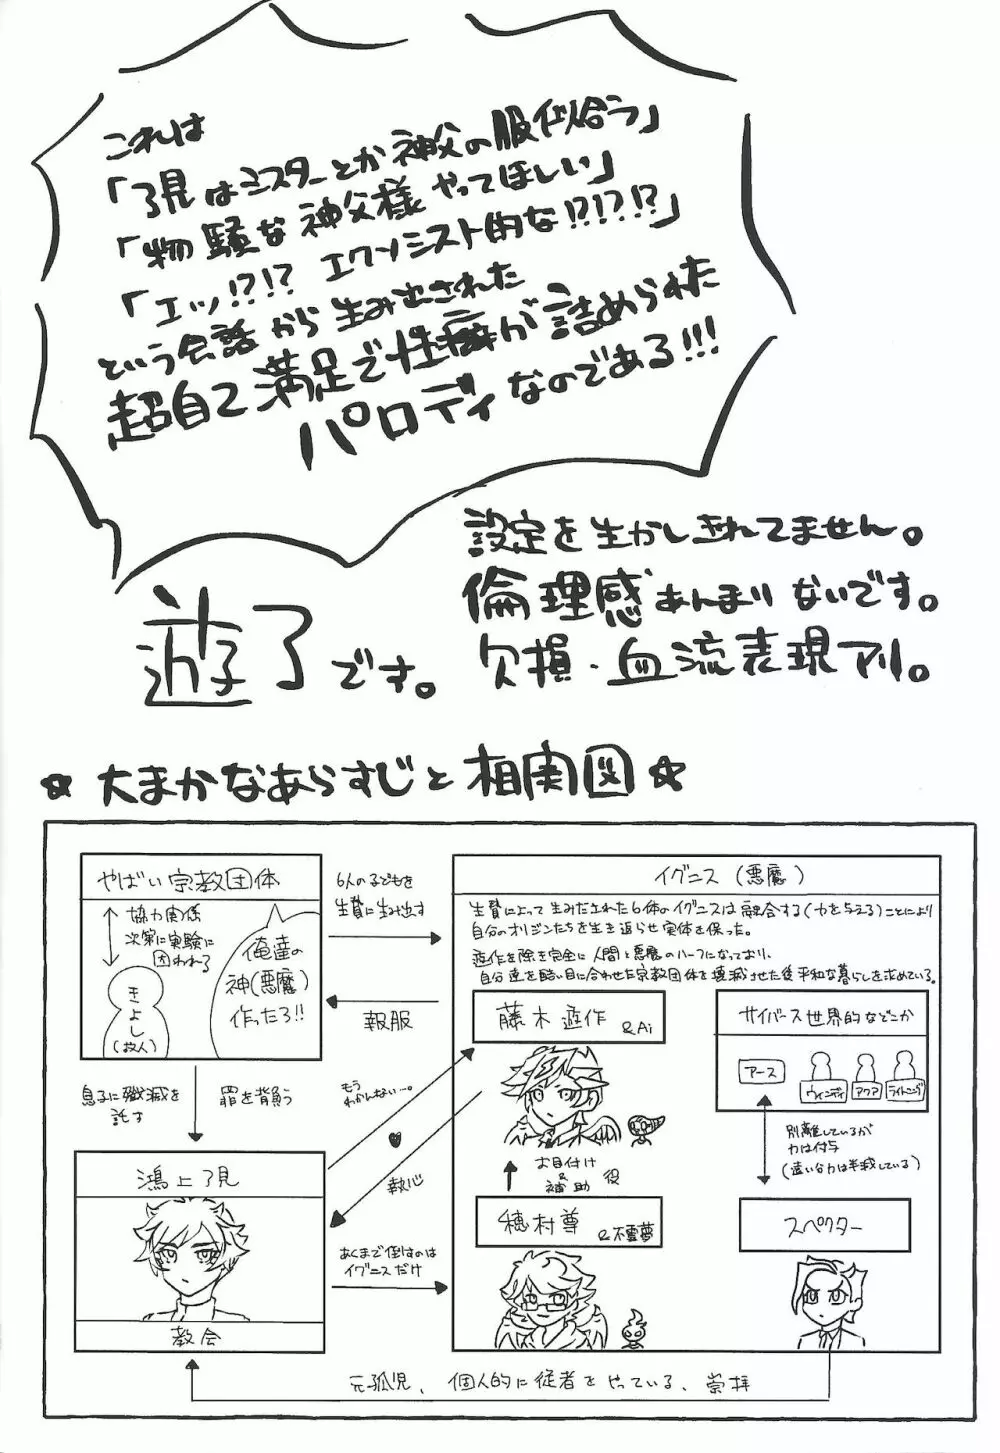 これは
「了見はミスターとか神父の服似合う」
「物騒な神父様やってほしい」
「エッ!?!? エクソシスト的な!?!?!?」
という会話から生み出された
超自己満足で性癖が詰められた
パロディなのである!!!
遊了です。
設定を生かしきれてません。
倫理感あんまりないです。
欠損・血流表現アリ。
☆大まかなあらすじと相関図☆
やばい宗教団体
協力関係
次第に実験に
囚われる
きよし
(故人)
俺達の
神(悪魔)
作ったろ!!
6人の子どもを
生贄に生み出す
報服
イグニス(悪魔)
生贄によって生みだされた6体のイグニスは融合する(力を与える)ことにより
自分のオリジンたちを生き返らせ実体を保った。
遊作を除き完全に人間と悪魔のハーフになっており、
自分達を酷い目に合わせた宗教団体を壊滅させた後平和な暮らしを求めている。
藤木遊作 &Ai
サイバース世界的などこか
アース
ウィンディ
アクア
ライトニング
別離しているが
力は付与
(遠い分力は半減している)
息子に殲滅を
託す
罪を背負う
もう
わかんない…。
執心
お目付け
&
補助
役
鴻上了見
教会
あくまで倒すのは
イグニスだけ
穂村尊 &不霊夢
スペクター
元孤児、個人的に従者をやっている、崇拝